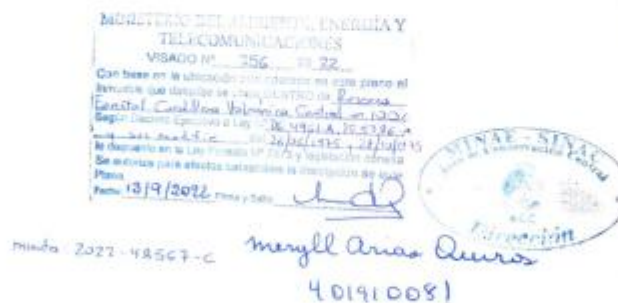 MINISTERIO DEL AMBIENTE, ENERGÍA Y
TELECOMUNICACIONES
VISADO Nº 256 22
Con base en la ubicación en este plano el
inmueble que describe se DENTRO de Reserva
Forestal Cordillera Volcánica Central en 100%
Según Decreto Ejecutivo o Ley DE 4961 A, 25
26/06/1975
lo dispuesto en la Ley Forestal Nº 7575 y legislación conexa
Se autoriza para efectos catastrales la inscripción de este
Plano.
Fecha 13/9/2022 Firma y Sello
MINAE - SINAC
Área de Conservación Central
ACC
Dirección
minuta 2022-48567-C
Meryll Arias Quiros
401910081